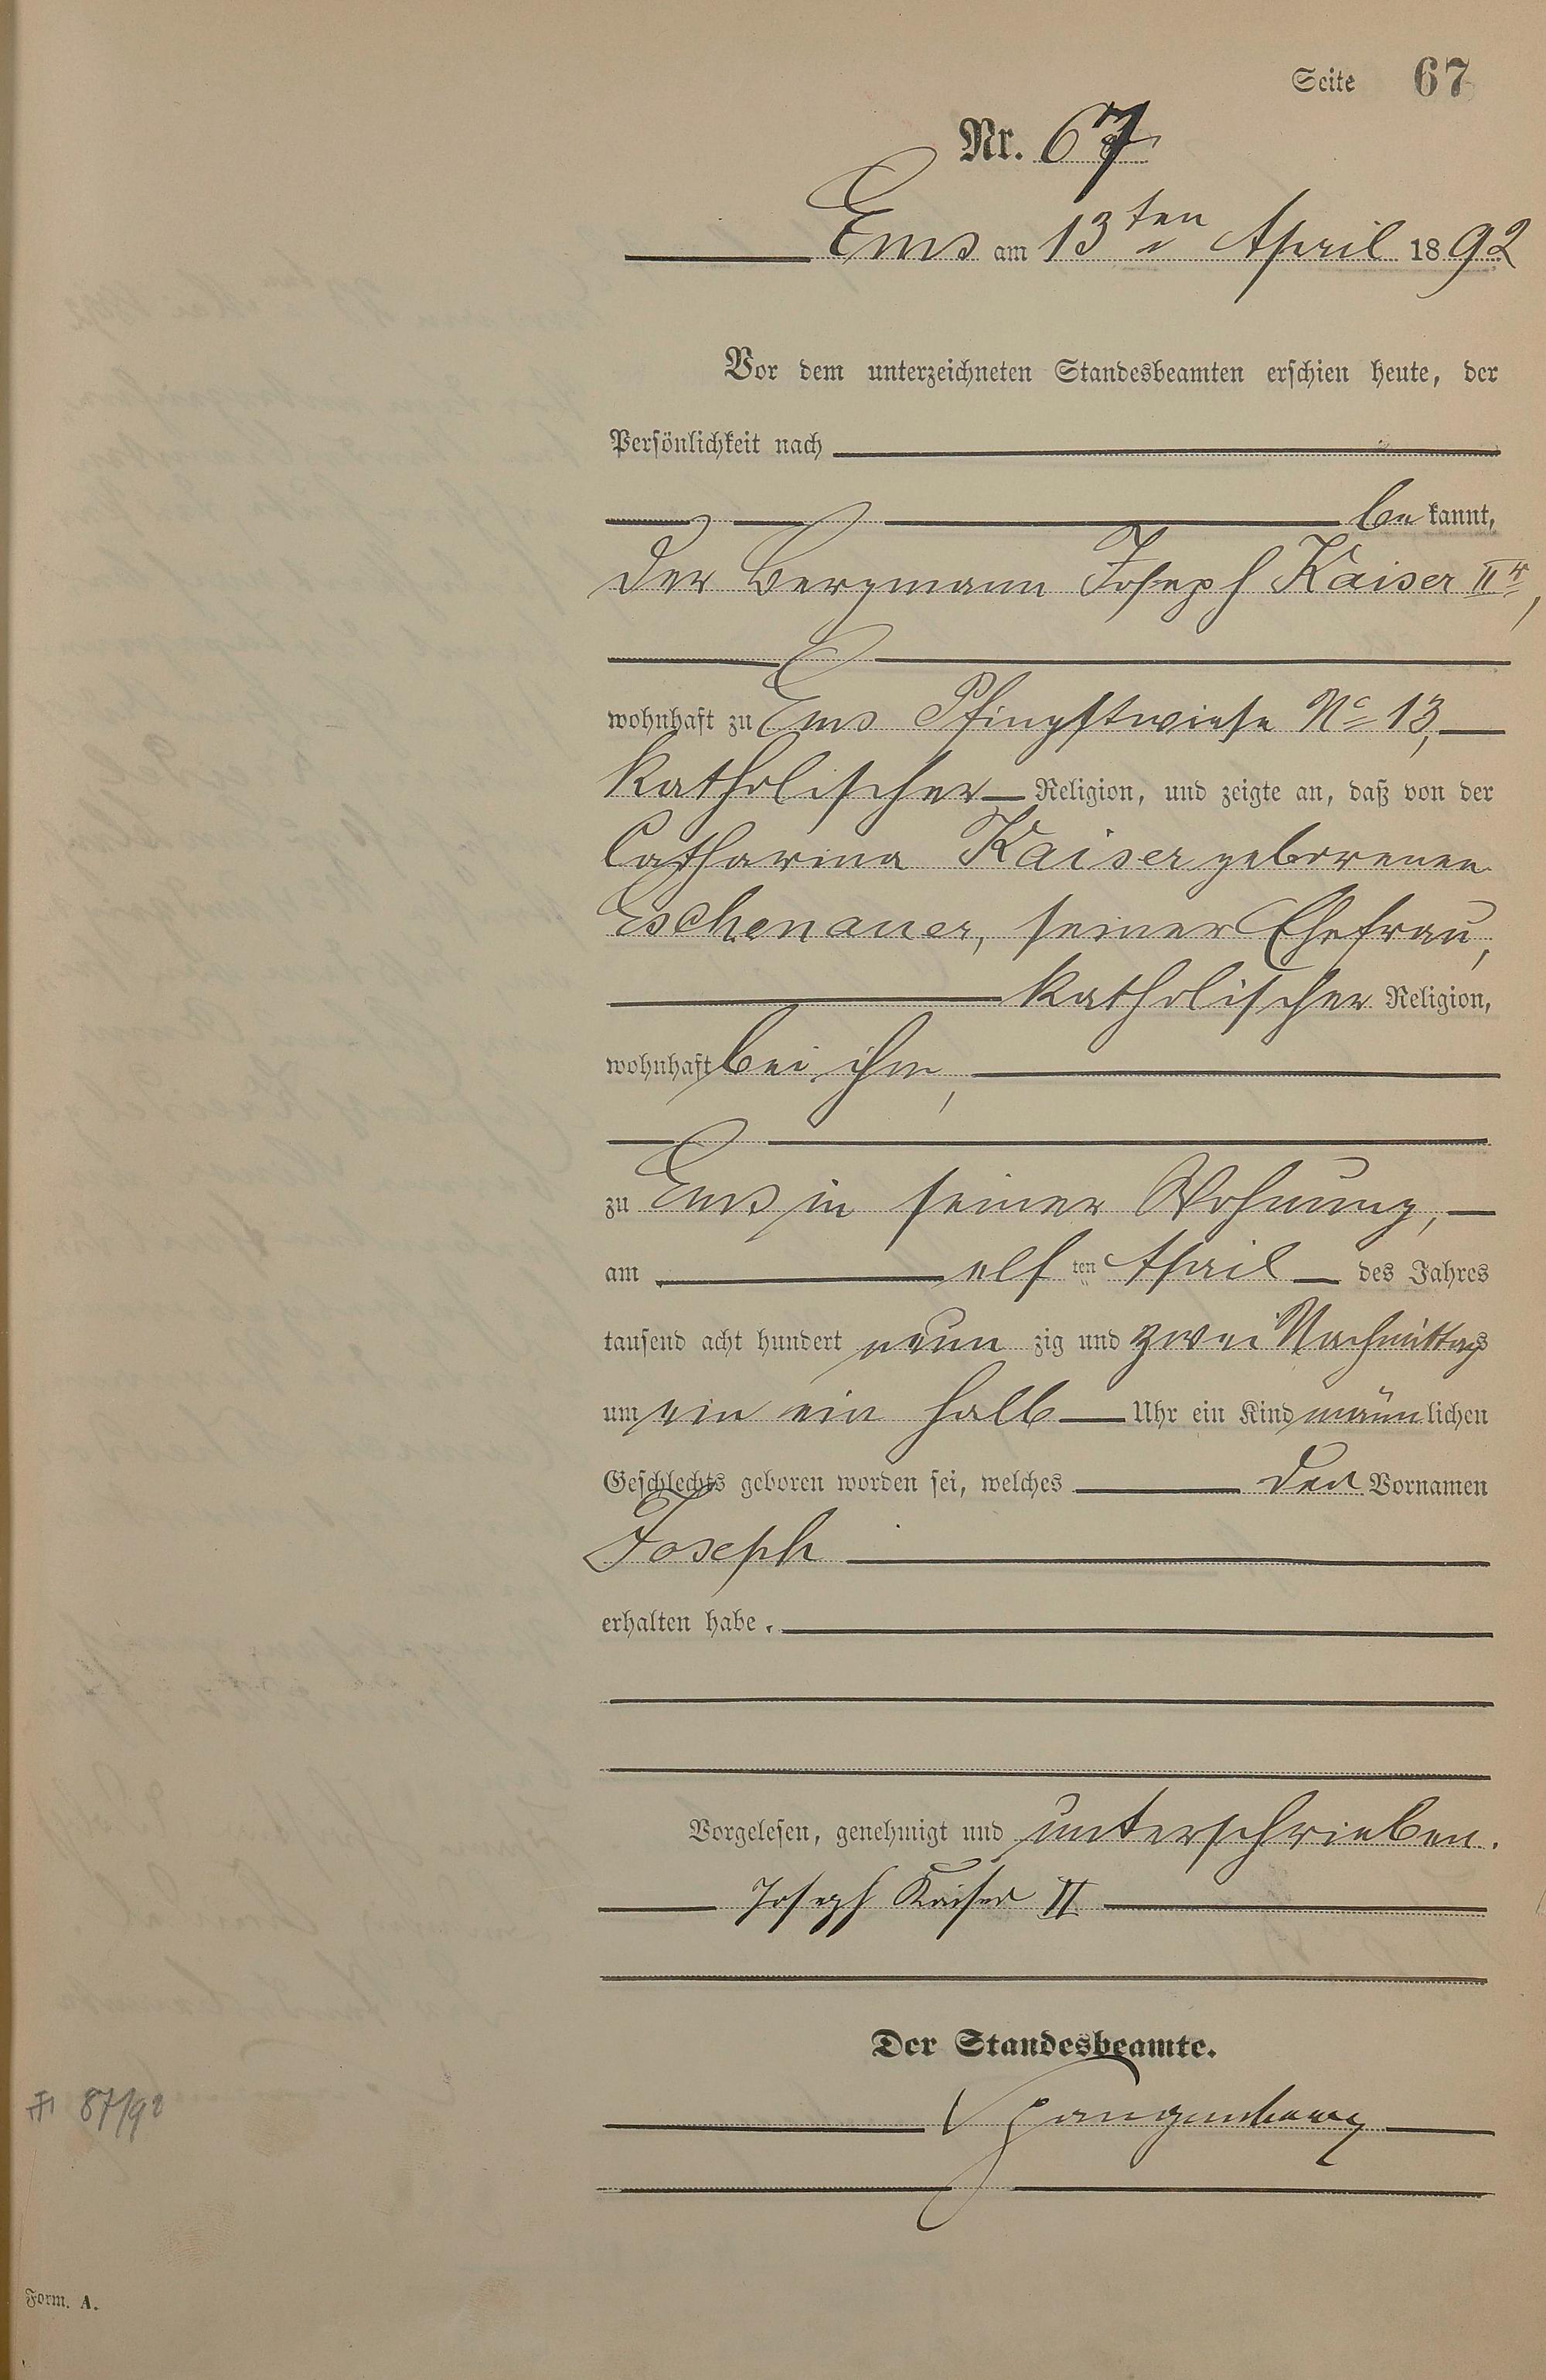 Seite 67
Nr. 67
Ems am 13ten April 1892
Vor dem unterzeichneten Standesbeamten erschien heute, der
Persönlichkeit nach
be kannt,
der Bergmann Joseph Kaiser IIr,
wohnhaft zu Ems Pfingstwiese No 13,
katholischer Religion, und zeigte an, daß von der
Catharina Kaiser geborenen
Eschenauer, seiner Ehefrau,
katholischer Religion,
wohnhaft bei ihm,
zu Ems in seiner Wohnung,
am elf ten April des Jahres
tausend acht hundert neun zig und zwei Nachmittags
um ein ein halb Uhr ein Kind männ lichen
Geschlechts geboren worden sei, welches den Vornamen
Joseph
erhalten habe.
Vorgelesen, genehmigt und unterschrieben.
Joseph Kaiser II
Der Standesbeamte.
Spangenberg
87/92
Form. A.